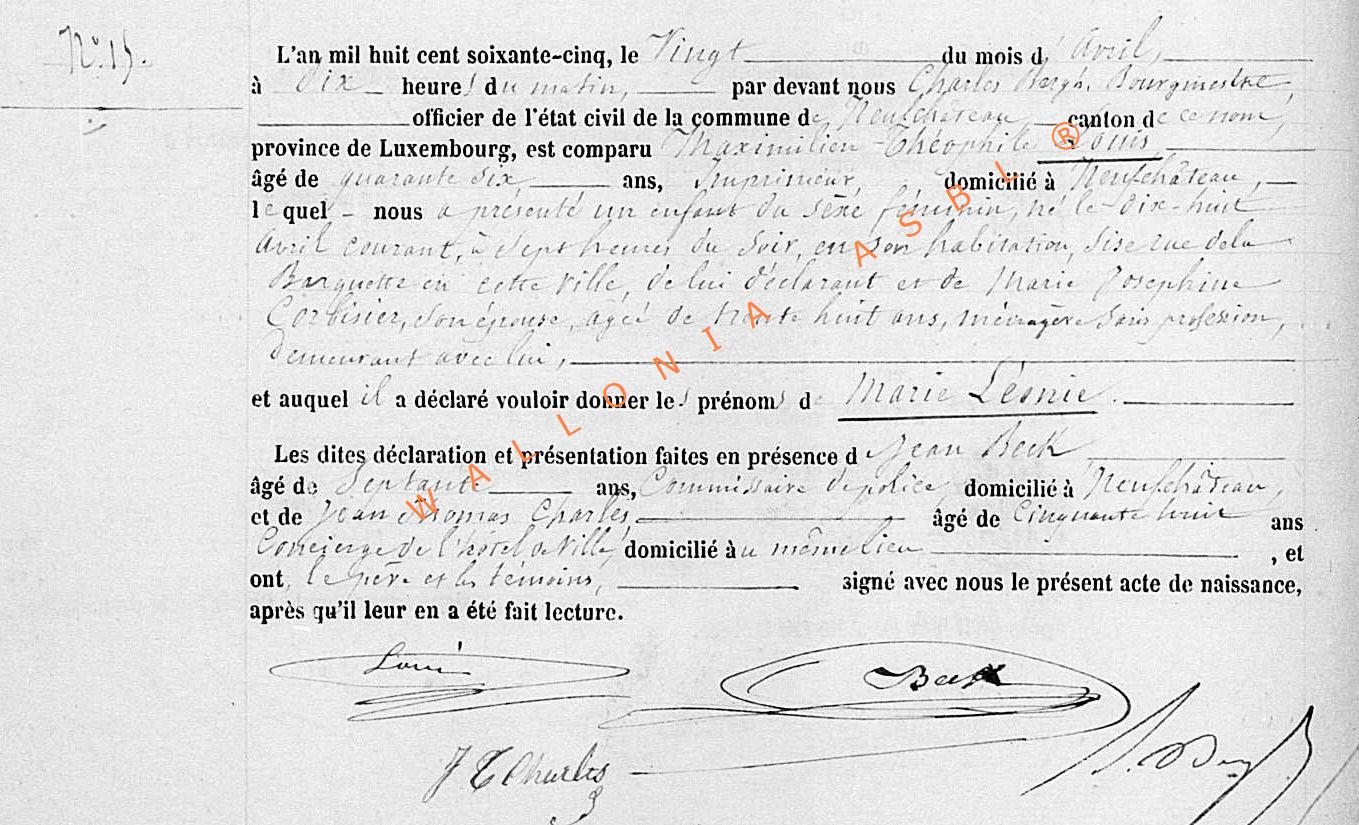 N° 15.
L'an mil huit cent soixante-cinq, le Vingt du mois d'Avril,
à Dix heures du matin, par devant nous Charles Bergh, Bourgmestre,
officier de l'état civil de la commune de Neufchâteau canton de ce nom,
province de Luxembourg, est comparu Maximilien Théophile Louis,
âgé de quarante six, ans, Imprimeur, domicilié à Neufchâteau,
lequel nous a présenté un enfant du sexe féminin, né le dix-huit
Avril courant, à Sept heures du Soir, en son habitation, sise rue de la
Barquette en cette Ville, de lui déclarant et de Marie Josephine
Corbisier, son épouse, agée de trente huit ans, ménagère sans profession,
Demeurant avec lui,
et auquel il a déclaré vouloir donner les prénoms de Marie Léonie.
Les dites déclaration et présentation faites en présence de Jean Beck
âgé de Septante ans, Commissaire de police domicilié à Neufchâteau,
et de Jean Thomas Charles, âgé de Cinquante huit ans
Concierge de l'hôtel de Ville, domicilié au même lieu , et
ont, le père et les témoins, signé avec nous le présent acte de naissance,
après qu'il leur en a été fait lecture.
Louis
Beck
J T Charles
WALLONIA ASBL ®